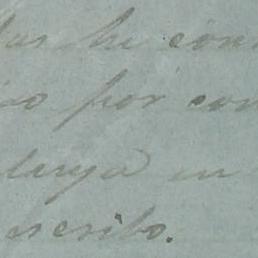 las he con
so por con
larga en
escrito.